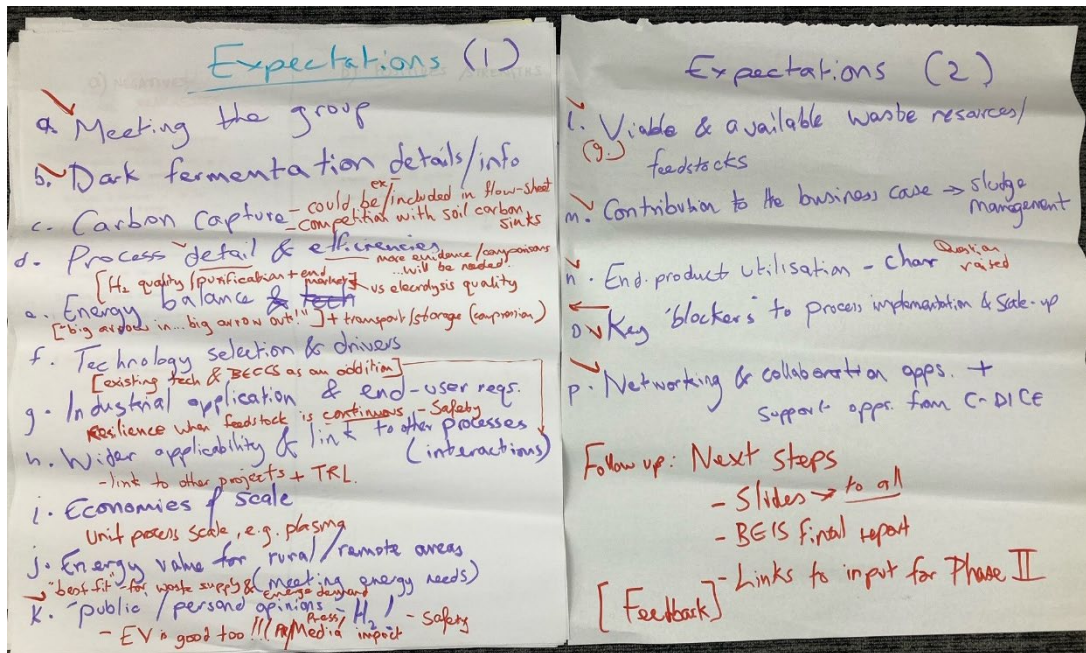 Expectations (1)
a. Meeting the group
b. Dark fermentation details/info
c. Carbon capture - could be ex/included in flow-sheet
- competition with soil carbon sinks
d. Process detail & efficiencies
more evidence/comparisons
...will be needed.
[H2 quality/purification + end markets] vs elecrolysis quality
e. Energy balance & tech
["big arrow in... big arrow out!"] + transport/storage (compression)
f. Technology selection & drivers
[existing tech & BECCS as an addition]
g. Industrial application & end-user reqs.
Resilience when feedstock is continuous - Safety
h. Wider applicability & link to other processes
(interactions)
- link to other projects + TRL.
i. Economies of scale
Unit process scale, e.g. plasma
j. Energy value for rural/remote areas
(meeting energy needs)
"best fit" for waste supply & energy demand
k. public/personal opinions - H2! - Safety
- EV is good too!!! Press/Media impact
Expectations (2)
l. Viable & available waste resources/
(g.) feedstocks
m. Contribution to the business case → sludge management
n. End product utilisation - char Question raised
o. Key "blockers" to process implementation & scale-up
p. Networking & collaboration opps. +
support opps. from C-DICE
Follow up: Next steps
- Slides → to all
- BEIS final report
- Links to input for Phase II
[Feedback]